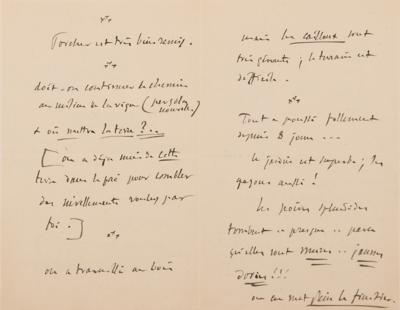 Torcher est très bien remis.
doit-on continuer le chemin
au milieu de la vigne (pergola
nouvelle)
& où mettra la terre ?...
[on a déjà mis de cette
terre dans le pré pour combler
des nivellements voulus par
toi.]
on a travaillé au bois
mais les cailloux sont
très gênants ; le terrain est
difficile.
Tout a poussé follement
depuis 8 jours ...
le jardin est superbe ; les
gazons aussi !
Les poires splendides
tombent .. presque .. parce
qu'elles sont mures .. jaunes
dorées !!!
on en met plein le fruitier.